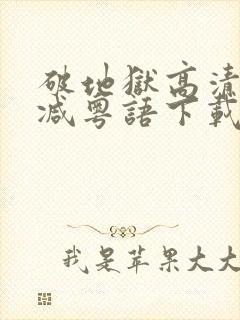 破地獄高清
減粵語下載
我是苹果大大